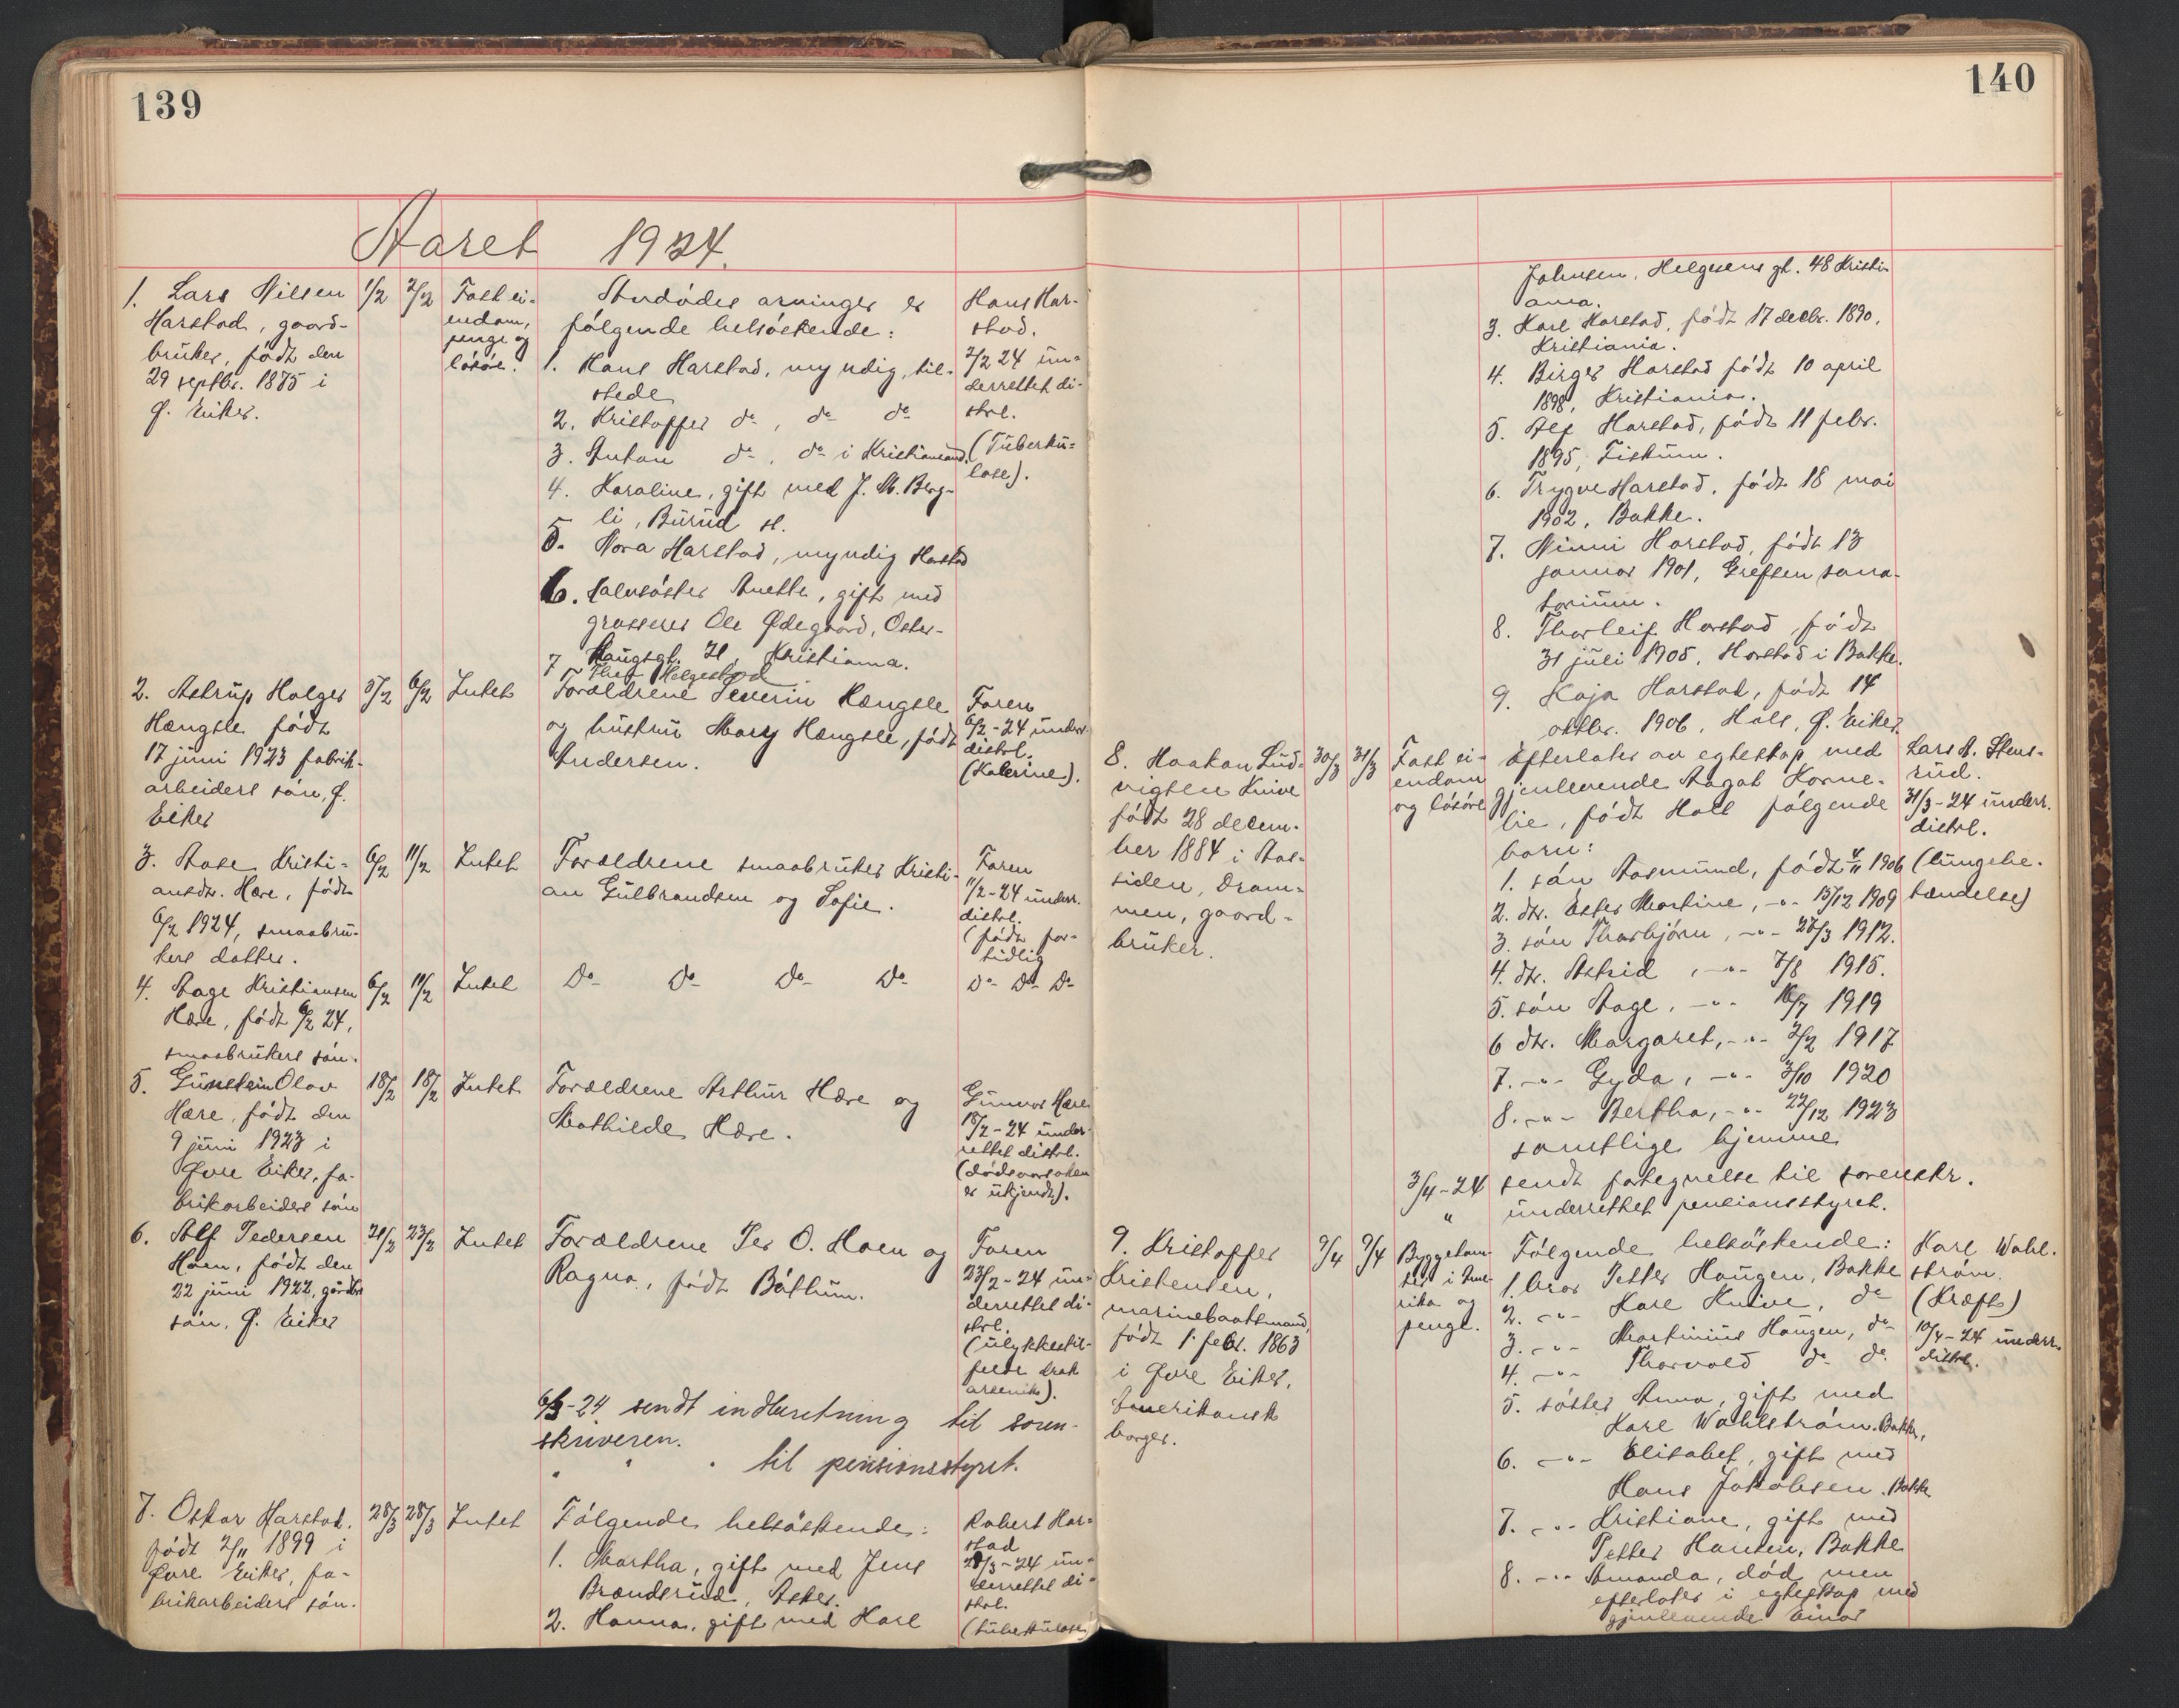 139
Aaret 1924.
1. Lars Nilsen
Harstad, gaard-
bruker, født den
29 septbr. 1875 i
Ø. Eiker.
1/2
2/2
Fast ei-
endom,
penge og
løsøre.
Avdødes arvinger er
følgende helsøskende:
1. Hans Harstad, myndig, til-
stede
2. Kristoffer do, do do
3. Anton do, do i Kristiansand.
4. Karoline, gift med J. M. Berg-
li, Burud st.
5. Nora Harstad, myndig Harstad
6. Halvsøster Anette, gift med
grosserer Ole Ødegaard, Oster-
Haugsgt. 21, Kristiania.
7 Thef Helgestad
Hans Har-
stad.
2/2 24 un-
derrettet di-
strl.
(Tuberku-
lose).
2. Astrup Holger
Hængsle født
17 juni 1923 fabrik-
arbeiders søn, Ø.
Eiker
5/2
6/2
Intet
Forældrene Severin Hængsle
og hustru Mary Hængsle, født
Andersen.
Faren
6/2-24 underr.
distrl.
(Katerine).
3. Aase Kristi-
ansdtr. Hære, født
6/2 1924, smaabru-
kers datter.
6/2
11/2
Intet
Forældrene smaabruker Kristi-
an Gulbrandsen og Sofie.
Faren
11/2-24 underr.
distrl.
(født for-
tidlig
4. Aage Kristiansen
Hære, født 6/2 24,
smaabrukers søn.
6/2
11/2
Intet
Do Do Do Do
Do Do Do
5. Gunstein Olav
Hære, født den
9 juni 1923 i
Øvre Eiker, fa-
brikarbeiders søn
18/2
18/2
Intet
Forældrene Arthur Hære og
Mathilde Hære.
Gunnar Hære
18/2-24 under-
rettet distrl.
(dødsaarsaken
er ukjendt).
6. Alf Pedersen
Hoen, født den
22 juni 1922, gårdbr.
søn, Ø. Eiker
21/2
23/2
Intet
Forældrene Per O. Hoen og
Ragna, født Båthum.
Faren
23/2-24 un-
derrettet di-
strl.
(ulykkestil-
felde drak
arsenik).
6/3-24 sendt indberetning til soren-
skriveren.
" " " til pensionsstyret.
7. Oskar Harstad.
født 2/11 1899 i
Øvre Eiker, fa-
brikarbeiders søn.
28/3
28/3
Intet
Følgende helsøskende:
1. Martha, gift med Jens
Brænderud, Asker.
2. Hanna, gift med Karl
Robert Har-
stad
28/3-24 un-
derrettet di-
strl.
(tuberkulose)
140
Johnsen, Helgesens gt. 48 Kristi-
ania.
3. Karl Harstad, født 17 decbr. 1890,
Kristiania.
4. Birger Harstad født 10 april
1898, Kristiania.
5. Alf Harstad, født 11 febr.
1895, Fiskum.
6. Trygve Harstad, født 18 mai
1902, Bakke.
7. Ninni Harstad, født 13
januar 1901, Grefsen sana-
torium.
8. Thorleif Harstad, født
31 juli 1905, Harstad i Bakke.
9. Kaja Harstad, født 14
oktbr. 1906, Hals, Ø. Eiker.
8. Haakon Lud-
vigsen Knive
født 28 decem-
ber 1884 i Aas-
siden, Dram-
men, gaard-
bruker.
30/3
31/3
Fast ei-
endom
og løsøre
Efterlater av egteskap med
gjenlevende Aagot Korne-
lie, født Hals følgende
barn:
1. søn Aasmund, født 4/11 1906
2. dtr. Ester Martine, -"- 15/12 1909
3. søn Thorbjørn, -"- 28/3 1912.
4. dtr. Astrid, -"- 7/8 1915.
5. søn Aage, -"- 16/7 1919
6 dtr. Margaret, -"- 2/2 1917
7. -"- Gyda, -"- 3/10 1920
8. -"- Bertha, -"- 22/12 1923
samtlige hjemme
Lars A. Stens-
rud.
31/3-24 underr.
distrl.
(lungebe-
tændelse)
3/4-24 sendt fortegnelse til sorenskr.
" underrettet pensionsstyret.
9. Kristoffer
Kristensen,
marinebaatsmand,
født 1. febr. 1863
i Øvre Eiker,
Amerikansk
borger.
9/4
9/4
Byggetom-
ter i Ame-
rika og
penge.
Følgende helsøskende:
1. bror Petter Haugen, Bakke
2. -"- Karl Knive, do
3. -"- Martinius Haugen, do
4. -"- Thorvald do do
5. søster Anna, gift med
Karl Wahlstrøm. Bakke,
6. -"- Elisabet, gift med
Hans Jakobsen. Bakke
7. -"- Kristiane, gift med
Petter Hansen, Bakke
8. -"- Amanda, død men
efterlater i egteskap med
gjenlevende Einar
Karl Wahl-
strøm.
(Kræft)
10/4-24 underr.
distrl.